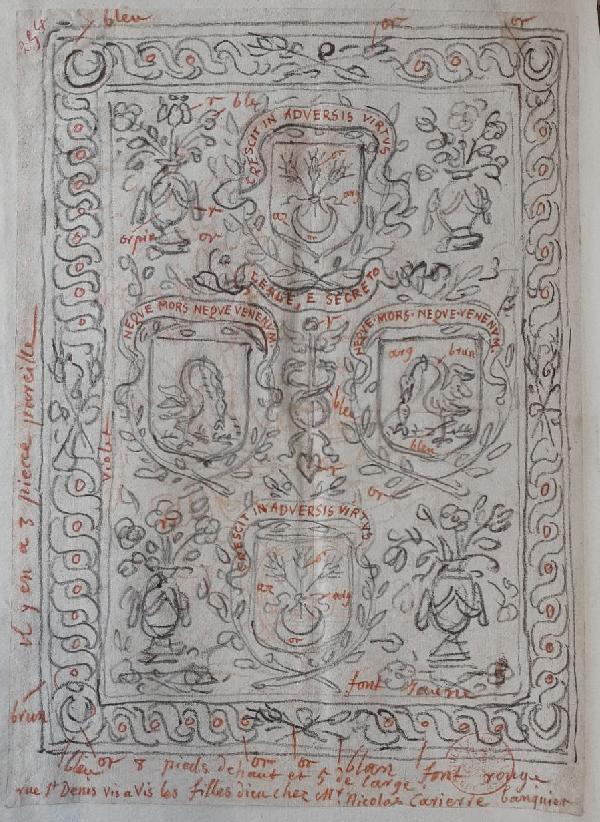 bleu
or
or
r
bleu
CRESCIT IN ADVERSIS VIRTVS
or
arg
az
or
r
orpin
or
LEALE, E SECRETO
NEQVE MORS NEQVE VENENVM
NEQVE·MORS·NEQVE·VENENVM
r
arg
brun
bleu
bleu
violet
il y en a 3 piece pareille
r
or
r
CRESCIT IN ADVERSIS VIRTVS
az
arg
or
font Jaune
brun
bleu
or 8 pieds de haut et 5 de large font rouge
or
or
blan
rue St Denis vis a Vis les filles dieu chez Mr. Nicolas Carierre banquier